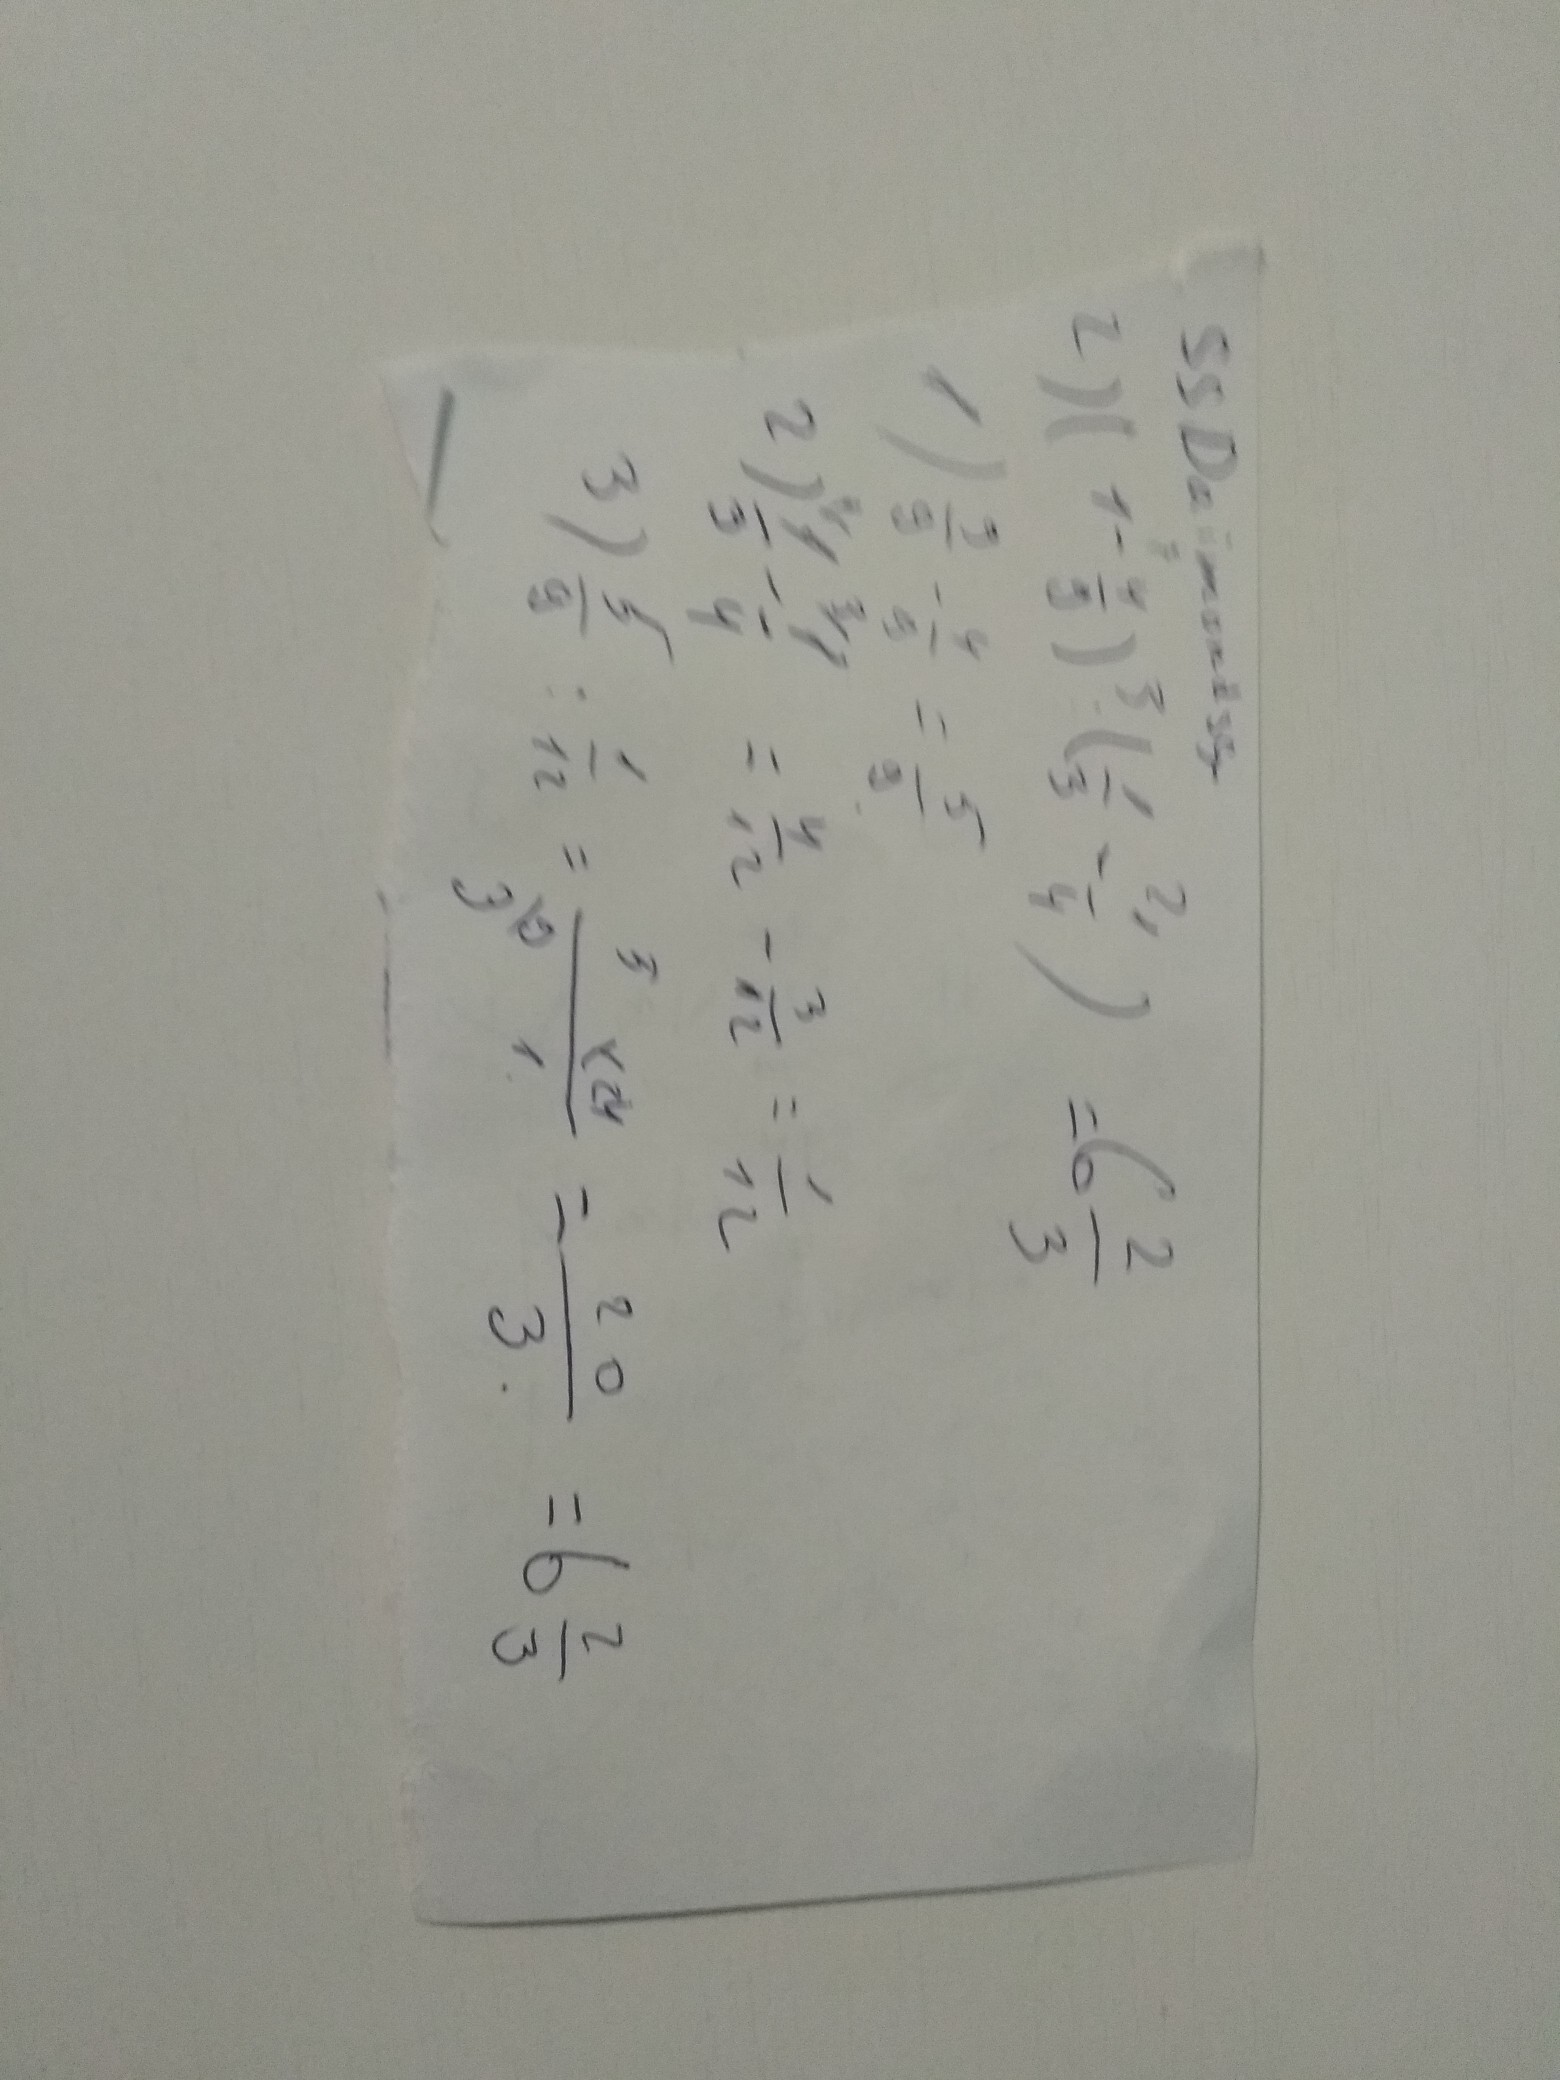 2) (1 - 4/9) : (1/3 - 1/4) = 6 2/3
1) 9/9 - 4/9 = 5/9
2) 1/3 - 1/4 = 4/12 - 3/12 = 1/12
3) 5/9 : 1/12 = = 20/3 = 6 2/3